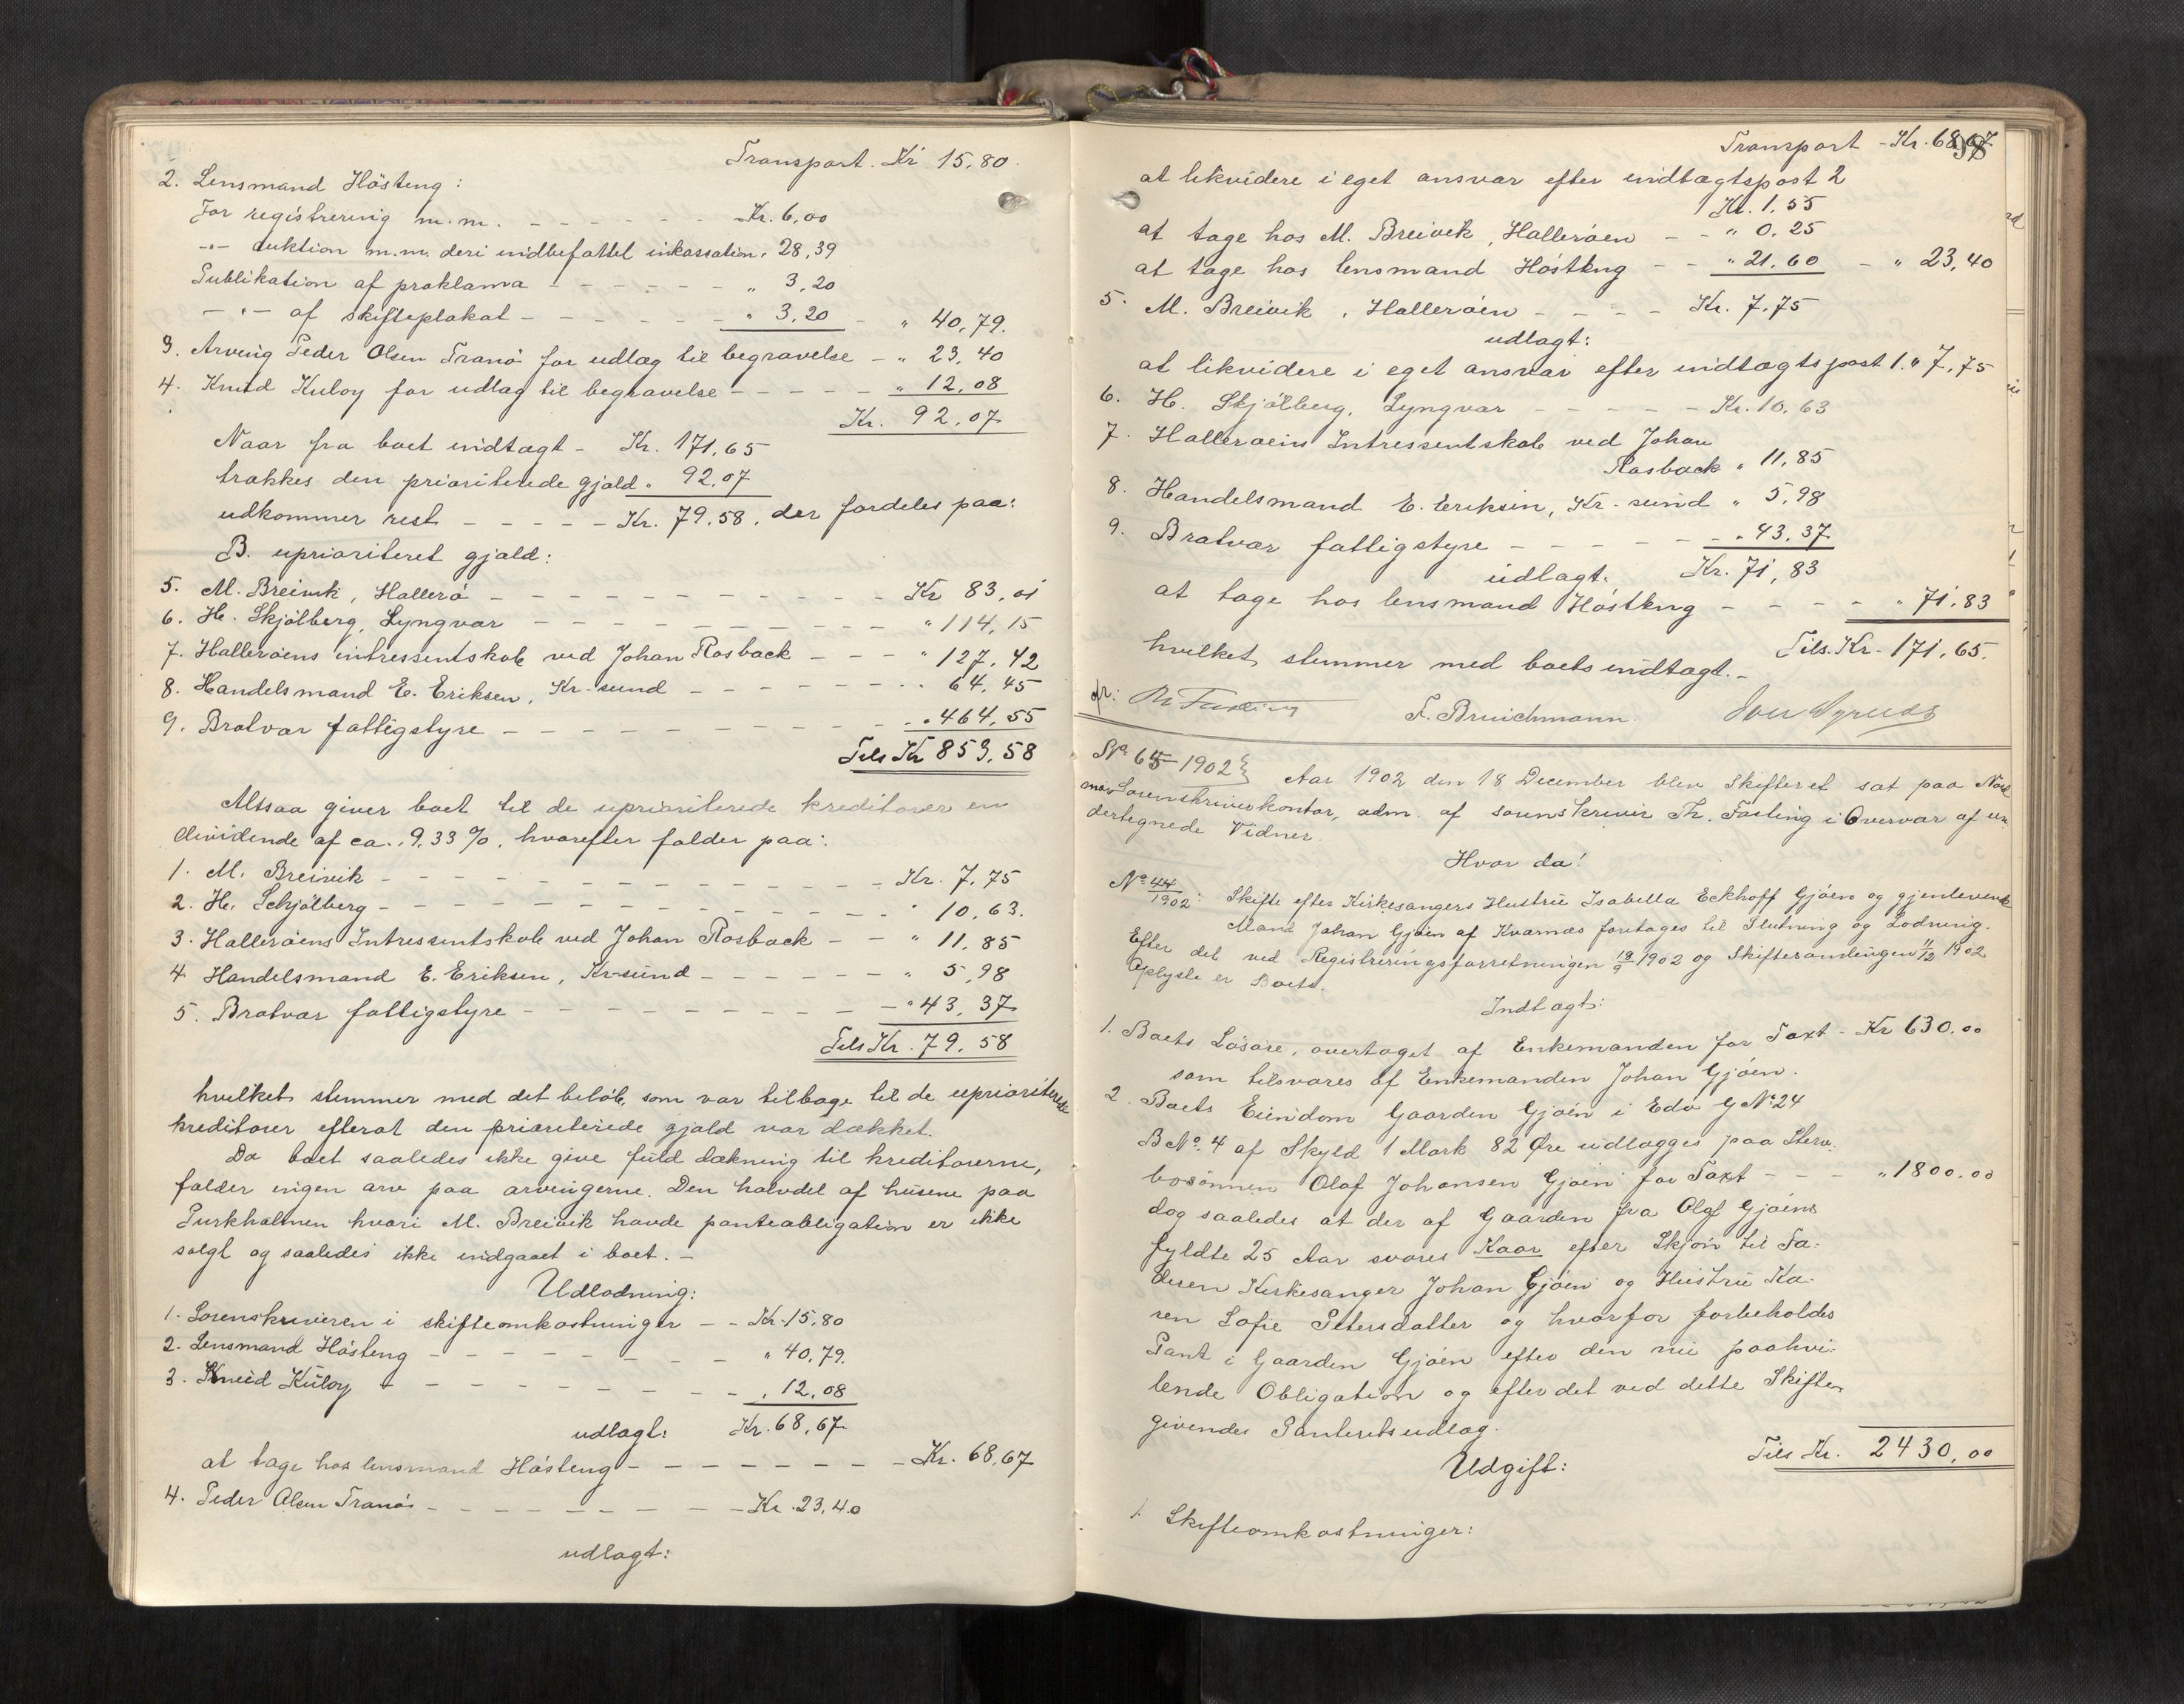 Transport. Kr 15,80.
2. Lensmand Hösteng:
For registrering m.m. - - - - - - Kr. 6,00
-"- auktion m.m. deri indbefattet inkassation " 28,39
Publikation af proklama - - - - - - " 3,20
-"- af skifteplakat - - - - - - " 3,20 - " 40,79.
3. Arving Peder Olsen Tranö for udlæg til begravelse - " 23,40
4. Knud Kuløy for udlæg til begravelse - - - - - " 12,08
Kr. 92,07
Naar fra boet indtægt - Kr. 171,65
trækkes den prioriterede gjæld " 92,07
udkommer rest - - - - - Kr. 79,58, der fordeles paa:
B. uprioriteret gjæld:
5. M. Breivik, Hallerö - - - - - - - - - - - Kr 83,01
6. H. Skjölberg, Lyngvær - - - - - - - - - - " 114,15
7. Halleröens intressentskab ved Johan Rosbach - - - " 127,42
8. Handelsmand E. Eriksen, Kr-sund - - - - - - - " 64,45
9. Bratvær fattigstyre - - - - - - - - - - " 464,55
Tils Kr 853,58
Altsaa giver boet til de uprioriterede kreditorer en
dividende af ca. 9,33 %, hvorefter falder paa:
1. M. Breivik - - - - - - - - - - - - Kr. 7,75
2. H. Schjölberg - - - - - - - - - - - - " 10,63.
3. Halleröens Intressentskab ved Johan Rosbach - - " 11,85
4 Handelsmand E. Eriksen, Kr-sund - - - - - - " 5,98
5. Bratvær fattigstyre - - - - - - - - - - " 43,37
Tils Kr. 79,58
hvilket stemmer med det belöb, som var tilbage til de uprioriterede
kreditorer efterat den prioriterede gjæld var dækket.
Da boet saaledes ikke give fuld dækning til kreditorerne,
falder ingen arv paa arvingerne. Den halvdel af husene paa
Purkholmen hvori M. Breivik havde panteobligation er ikke
solgt og saaledes ikke indgaaet i boet. -
Udlodning:
1. Sorenskriveren i skifteomkostninger - - Kr. 15,80
2. Lensmand Hösteng - - - - - - - - " 40,79.
3. Knud Kuløy - - - - - - - - - - " 12,08
udlagt: Kr. 68,67
at tage hos lensmand Hösteng - - - - - - - - Kr. 68,67
4. Peder Olsen Tranö - - - - - - - - - - Kr. 23,40
udlagt:
98
Transport - Kr. 68,67
at likvidere i eget ansvar efter indtægtspost 2
Kr. 1,55
at tage hos M. Breivik, Halleröen - - " 0,25
at tage hos lensmand Hösteng - - " 21,60 - " 23,40
5. M. Breivik, Halleröen - - - - Kr. 7,75
udlagt:
at likvidere i eget ansvar efter indtægtspost 1. " 7,75
6. H. Skjölberg, Lyngvær - - - - - Kr. 10,63
7. Halleröens Intressentskab ved Johan
Rosback " 11,85
8. Handelsmand E. Eriksen, Kr-sund " 5,98
9. Bratvær fattigstyre - - - - - - " 43,37
udlagt: Kr. 71,83
at tage hos lensmand Hösteng - - - - " 71,83
Tils. Kr. 171,65.
hvilket stemmer med boets indtægt. -
Th Fasting F. Bruichmann.
No. 65-1902 } Aar 1902 den 18 December blev Skifteret sat paa Nord
mør Sorenskriverkontor, adm. af sorenskriver Th. Fasting i Overvær af un
dertegnede Vidner.
Hvor da!
No 44/1902: Skifte efter Kirkesangers Hustru Isabella Eckhoff Gjöen og gjenlevende
Mand Johan Gjöen af Kvernæs foretages til Slutning og Lodning.
Efter det ved Registreringsforretningen 18/9 1902 og Skiftesamlingen 11/12 1902
Oplyste er Boets.
Indtægt:
1. Boets Lösöre, overtaget af Enkemanden for Taxt - Kr 630,00
som tilsvares af Enkemanden Johan Gjöen.
2. Boets Eiendom Gaarden Gjöen i Edö G No 24
B No. 4 af Skyld 1 Mark 82 Øre udlægges paa Sterv
bosönnen Olaf Johansen Gjöen for Taxt - - - " 1800,00
dog saaledes at der af Gaarden fra Olaf Gjöens
fyldte 25 Aar svares Kaar efter Skjön til Fa-
deren Kirkesanger Johan Gjöen og Hustru Ka-
ren Sofie Petersdatter og hvorfor forbeholdes
Pant i Gaarden Gjöen efter den nu paahvi-
lende Obligation og efter det ved dette Skifte
givendes Panteretsudlæg.
Tils Kr. 2430,00
Udgift:
1. Skifteomkostninger: